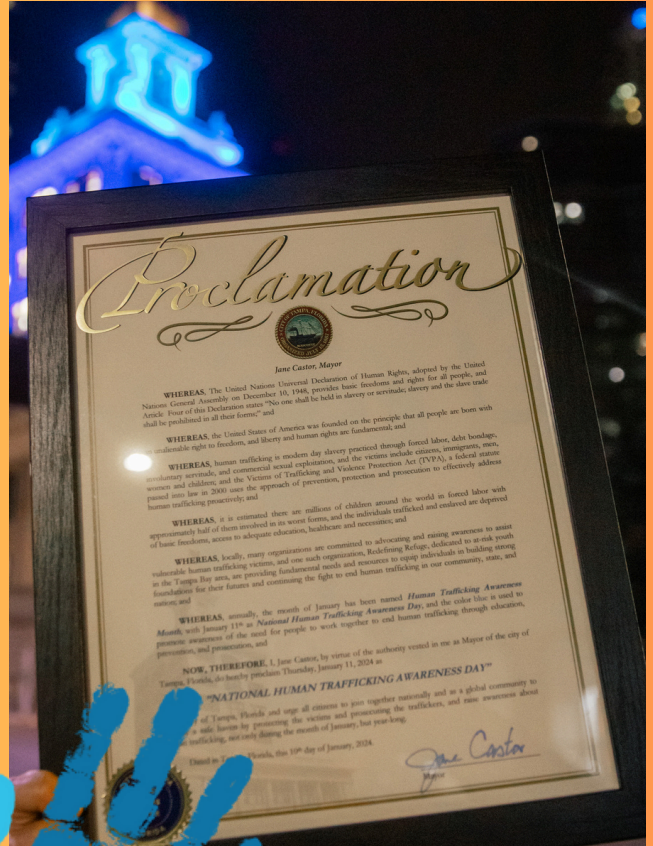 Proclamation
CITY OF TAMPA, FLORIDA
Jane Castor, Mayor
WHEREAS, The United Nations Universal Declaration of Human Rights, adopted by the United
Nations General Assembly on December 10, 1948, provides basic freedoms and rights for all people, and
Article Four of this Declaration states "No one shall be held in slavery or servitude; slavery and the slave trade
shall be prohibited in all their forms;" and
WHEREAS, the United States of America was founded on the principle that all people are born with
unalienable right to freedom, and liberty and human rights are fundamental; and
WHEREAS, human trafficking is modern day slavery practiced through forced labor, debt bondage,
involuntary servitude, and commercial sexual exploitation, and the victims include citizens, immigrants, men,
women and children; and the Victims of Trafficking and Violence Protection Act (TVPA), a federal statute
passed into law in 2000 uses the approach of prevention, protection and prosecution to effectively address
human trafficking proactively; and
WHEREAS, it is estimated there are millions of children around the world in forced labor with
approximately half of them involved in its worst forms, and the individuals trafficked and enslaved are deprived
of basic freedoms, access to adequate education, healthcare and necessities; and
WHEREAS, locally, many organizations are committed to advocating and raising awareness to assist
vulnerable human trafficking victims, and one such organization, Redefining Refuge, dedicated to at-risk youth
in the Tampa Bay area, are providing fundamental needs and resources to equip individuals in building strong
foundations for their futures and continuing the fight to end human trafficking in our community, state, and
nation; and
WHEREAS, annually, the month of January has been named Human Trafficking Awareness
Month, with January 11th as National Human Trafficking Awareness Day, and the color blue is used to
promote awareness of the need for people to work together to end human trafficking through education,
prevention, and prosecution, and
NOW, THEREFORE, I, Jane Castor, by virtue of the authority vested in me as Mayor of the city of
Tampa, Florida, do hereby proclaim Thursday, January 11, 2024 as
"NATIONAL HUMAN TRAFFICKING AWARENESS DAY"
of Tampa, Florida and urge all citizens to join together nationally and as a global community to
a safe haven by protecting the victims and prosecuting the traffickers, and raise awareness about
trafficking, not only during the month of January, but year-long.
Dated in Florida, this 10th day of January, 2024.
Jane Castor
Mayor